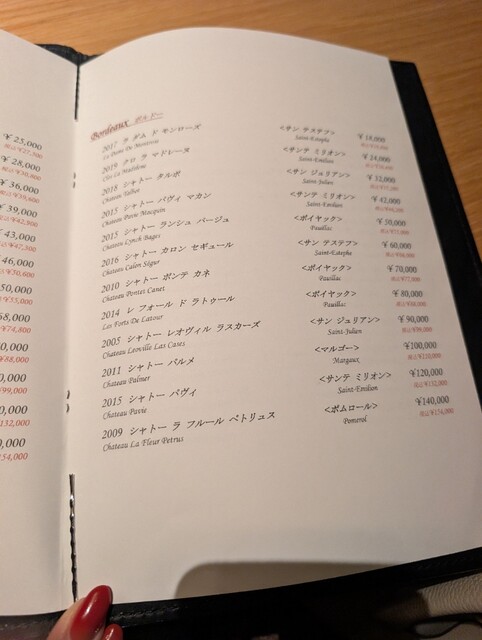 ¥25,000
税込¥27,500
¥28,000
税込¥30,800
¥36,000
税込¥39,600
¥39,000
税込¥42,900
¥43,000
税込¥47,300
46,000
¥50,600
50,000
¥55,000
68,000
¥74,800
0,000
¥88,000
0,000
¥99,000
0,000
132,000
0,000
154,000
Bordeaux ボルドー
2017 ラ ダム ド モンローズ <サン テステフ> ¥18,000
La Dame De Montrose Saint-Estephe
2019 クロ ラ マドレーヌ <サンテ ミリオン> ¥24,000
Clos La Madeleine Saint-Emilion
2018 シャトー タルボ <サン ジュリアン> ¥32,000
Chateau Talbot Saint-Julien
2013 シャトー パヴィ マカン <サンテ ミリオン> ¥42,000
Chateau Pavie Macquin Saint-Emilion
2015 シャトー ランシュ バージュ <ポイヤック> ¥50,000
Chateau Lynch Bages Pauillac
2016 シャトー カロン セギュール <サン テステフ> ¥60,000
Chateau Calon Ségur Saint-Estephe 税込¥66,000
2010 シャトー ポンテ カネ <ポイヤック> ¥70,000
Chateau Pontet Canet Pauillac 税込¥77,000
2014 レ フォール ド ラトゥール <ポイヤック> ¥80,000
Les Forts De Latour Pauillac 税込¥88,000
2005 シャトー レオヴィル ラスカーズ <サン ジュリアン> ¥90,000
Chateau Leoville Las Cases Saint-Julien 税込¥99,000
2011 シャトー パルメ <マルゴー> ¥100,000
Chateau Palmer Margaux 税込¥110,000
2015 シャトー パヴィ <サンテ ミリオン> ¥120,000
Chateau Pavie Saint-Emilion 税込¥132,000
2009 シャトー ラ フルール ペトリュス <ポムロール> ¥140,000
Chateau La Fleur Petrus Pomerol 税込¥154,000